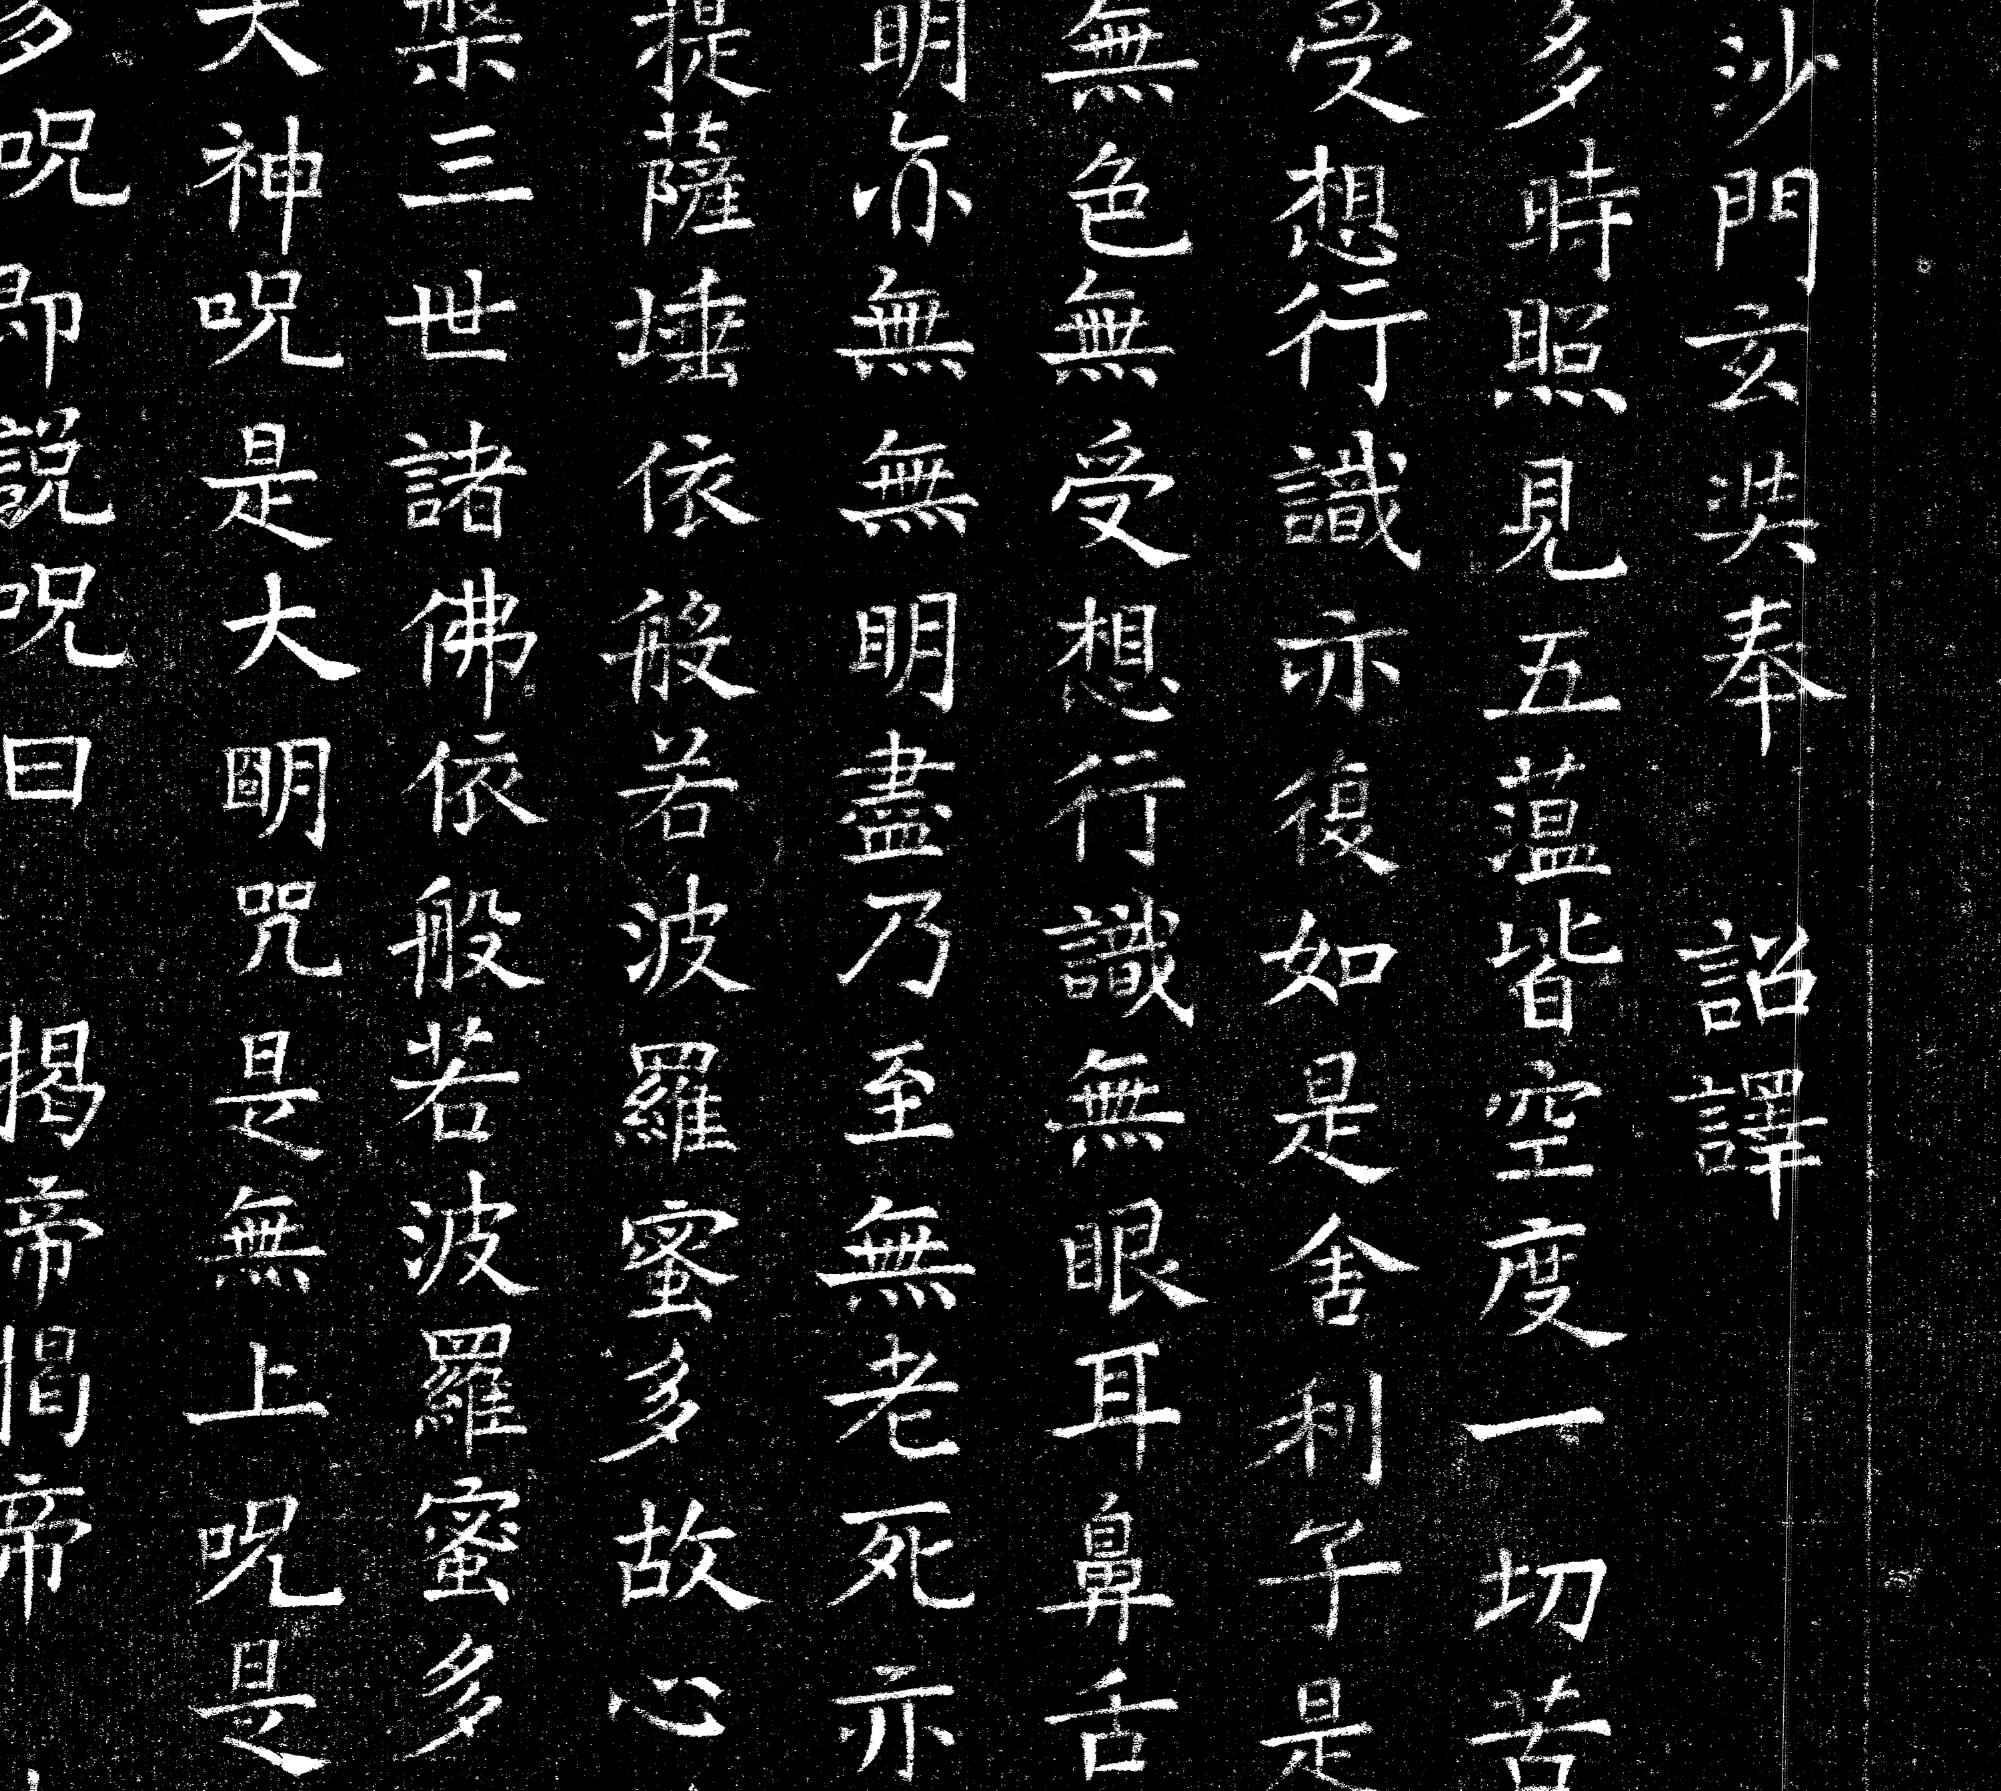 沙門玄奘奉 詔譯
多時照見五蕴皆空度一切苦
受想行識亦復如是舍利子是
無色無受想行識無眼耳鼻舌
明亦無無明盡乃至無老死亦
提薩埵依般若波羅蜜多故心
槃三世諸佛依般若波羅蜜多
大神呪是大明咒是無上呪是
多呪即說呪曰 揭帝揭帝